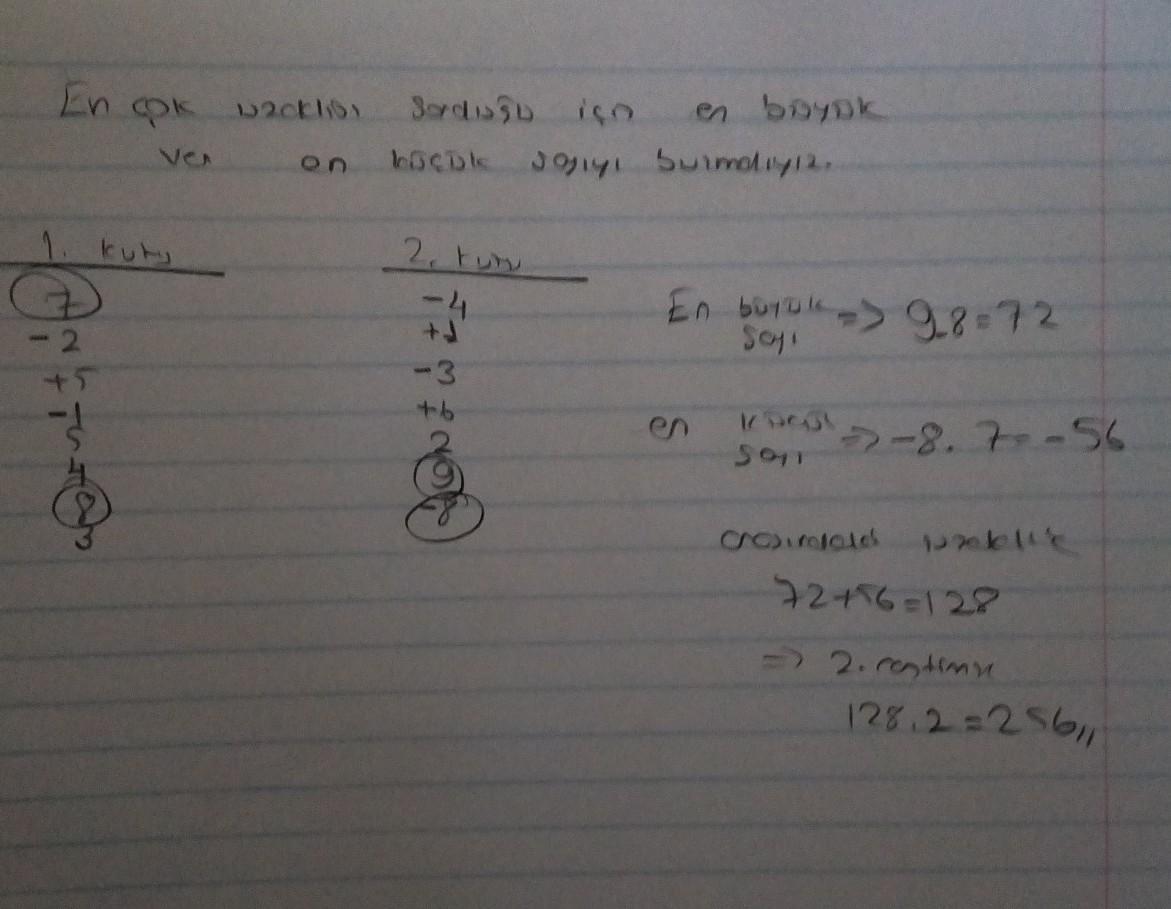 En çok uzaklığı sorduğu için en büyük
ve en küçük sayıyı bulmalıyız.
1. kutu 2. kutu
7 -4
-2 +1
+5 -3
-1 +6
5 2
4 9
8 -8
3
En büyük sayı => 9.8=72
en küçük sayı => -8.7=-56
arasındaki uzaklık
72+56=128
=> 2.
128.2=256,,